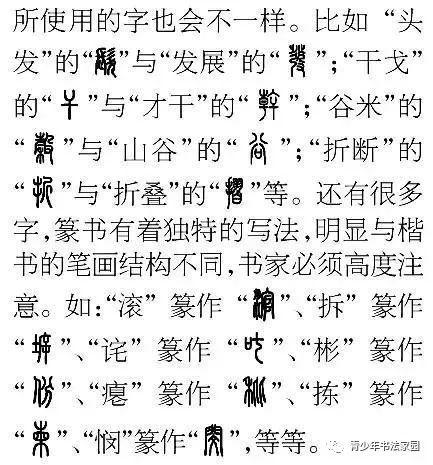 所使用的字也会不一样。比如 “头
发”的“髮”与“发展”的“發”；“干戈”
的“干”与“才干”的“幹”；“谷米”的
“穀”与“山谷”的“谷”；“折断”的
“折”与“折叠”的“摺”等。还有很多
字，篆书有着独特的写法，明显与楷
书的笔画结构不同，书家必须高度注
意。如：“滚” 篆作 “”、“拆” 篆作
“”、“诧” 篆作 “吒”、“彬” 篆作
“份”、“” 篆作 “”、“拣” 篆作
“柬”、“悯”篆作“閔”，等等。
青少年书法家园